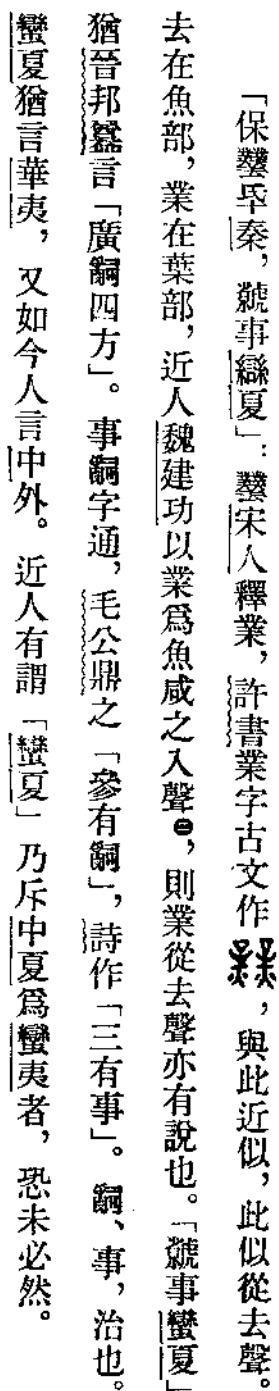 「保䥣氒秦，虩事䜌夏」：䥣宋人釋業，許書業字古文作，與此近似，此似從去聲。
去在魚部，業在葉部，近人魏建功以業爲魚咸之入聲㊀，則業從去聲亦有說也。「虩事蠻夏」
猶晉邦𥂴言「廣𤔲四方」。事𤔲字通，毛公鼎之「參有𤔲」，詩作「三有事」。𤔲、事，治也。
蠻夏猶言華夷，又如今人言中外。近人有謂「蠻夏」乃斥中夏爲蠻夷者，恐未必然。